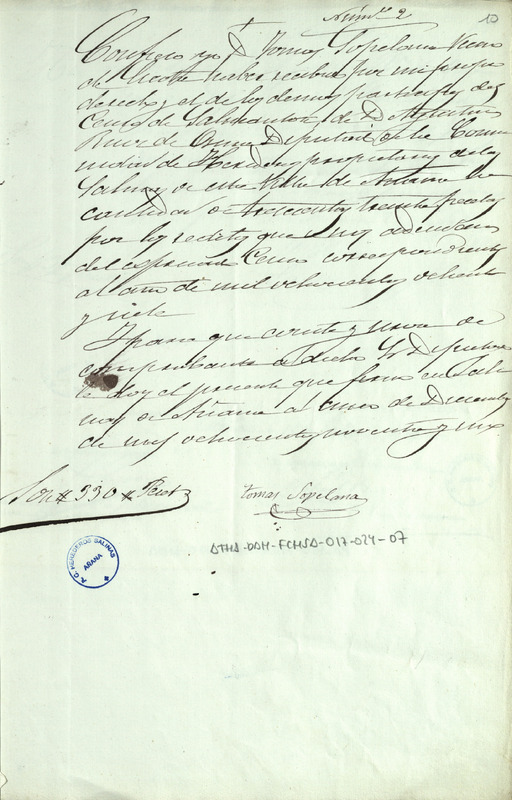 Núm.º 2
10
Confieso yo D. Tomas Sopelana Vecino
de haber recibido por mi y
derecho y el de los demas participes del
Censo de Salvatierra, de D. Agustin
Ruiz de Diputado de la Comu
nidad de Herederos propietarios de las
Salinas de esta Villa de Añana la
cantidad de trescientas treinta pesetas
por los reditos que nos adeudan
del espresado Censo correspondiente
al año de mil ochocientos ochenta
y siete
Y para que conste y sirva de
comprobante a dicho Sr. Diputado
le doy el presente que firmo en Sali
nas de Añana a de Diciembre
de mil ochocientos noventa y
Son # 330 # Peset.s
Tomas Sopelana
ATHA-DAH-FCHSA-017-024-07
A. C. HEREDEROS SALINAS
AÑANA